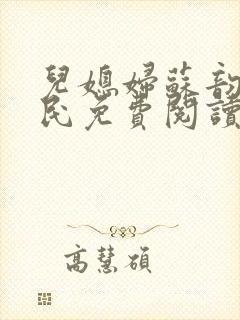 兒媳婦蘇韵
民免費閱讀
高慧碩